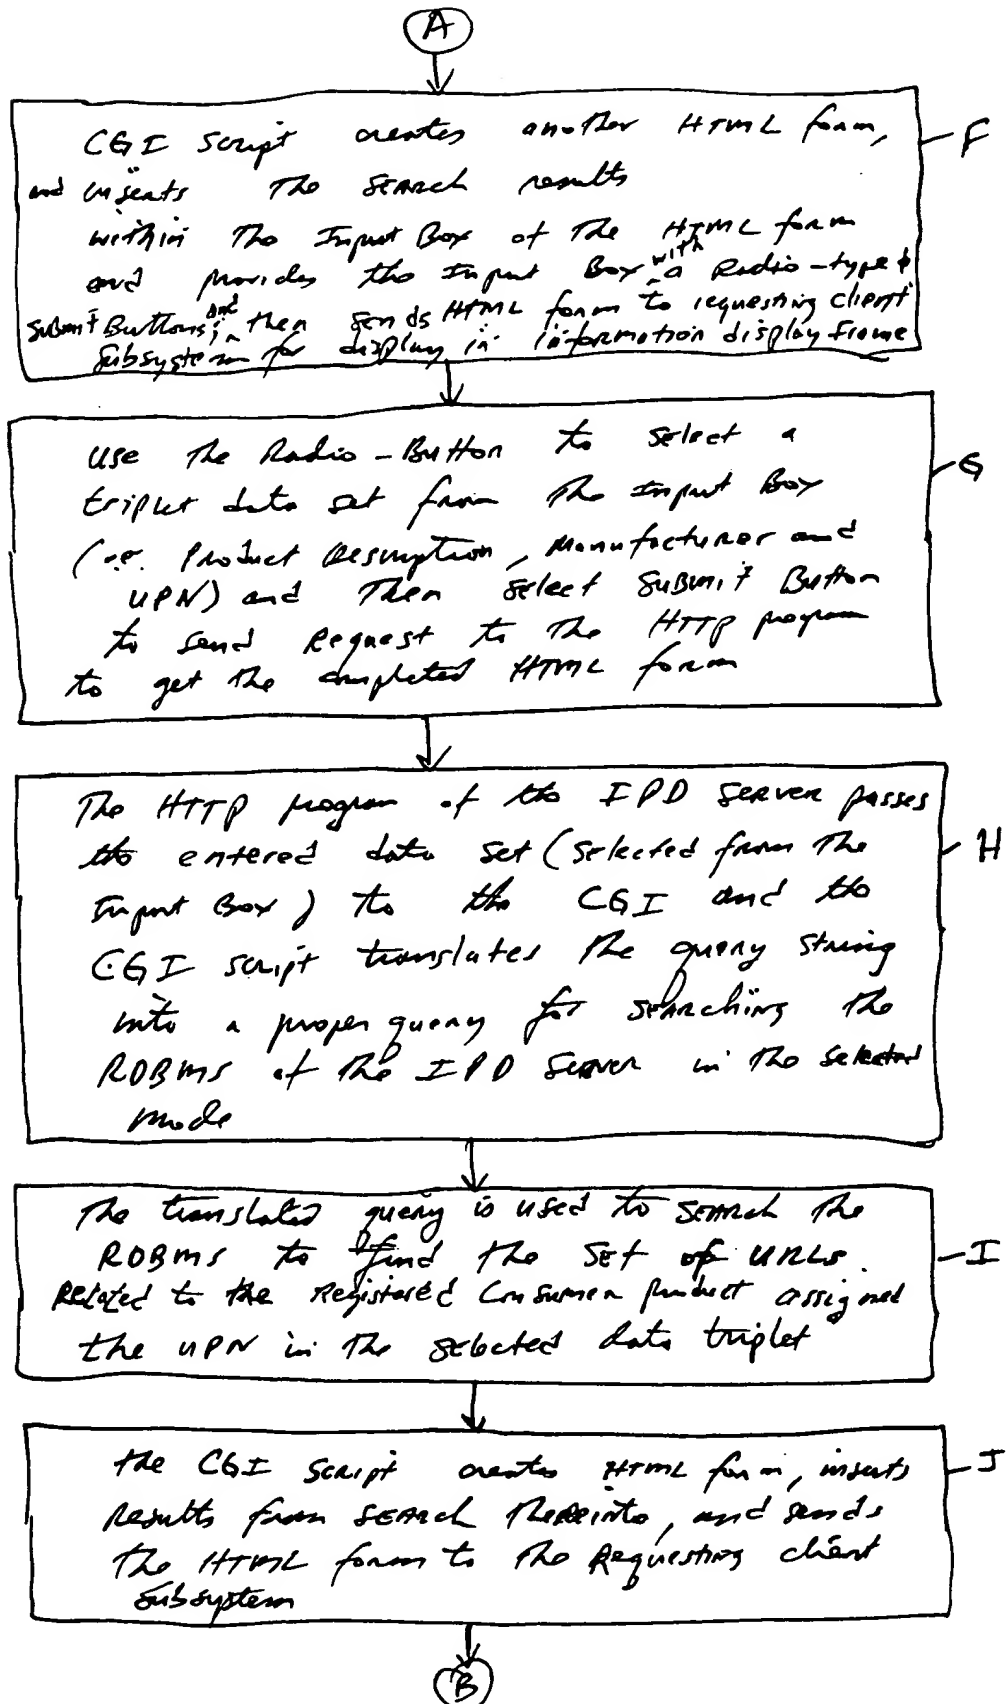 A
CGI Script creates another HTML form,
and inserts the SEARCH results
within The Input Box of The HTML form
and provides the Input Box with a Radio-type &
Submit Buttons; and then sends HTML form to requesting client
Subsystem for display in information display frame
F
use the Radio-Button to select a
triplet data set from The Input Box
(i.e. Product Description, Manufacturer and
UPN) and Then select Submit Button
to send Request to The HTTP program
to get the completed HTML form
G
The HTTP program of the IPD SERVER passes
the entered data set (selected from The
Input Box) to the CGI and the
CGI script translates the query string
into a proper query for SEARCHING the
RDBMS of the IPD Server in the selected
mode
H
The translated query is used to SEARCH The
RDBMS to find the SET of URLs
Related to the registered Consumer product assigned
the UPN in the selected data triplet
I
the CGI Script creates HTML form, inserts
Results from SEARCH thereinto, and sends
the HTML form to the Requesting client
Subsystem
J
B